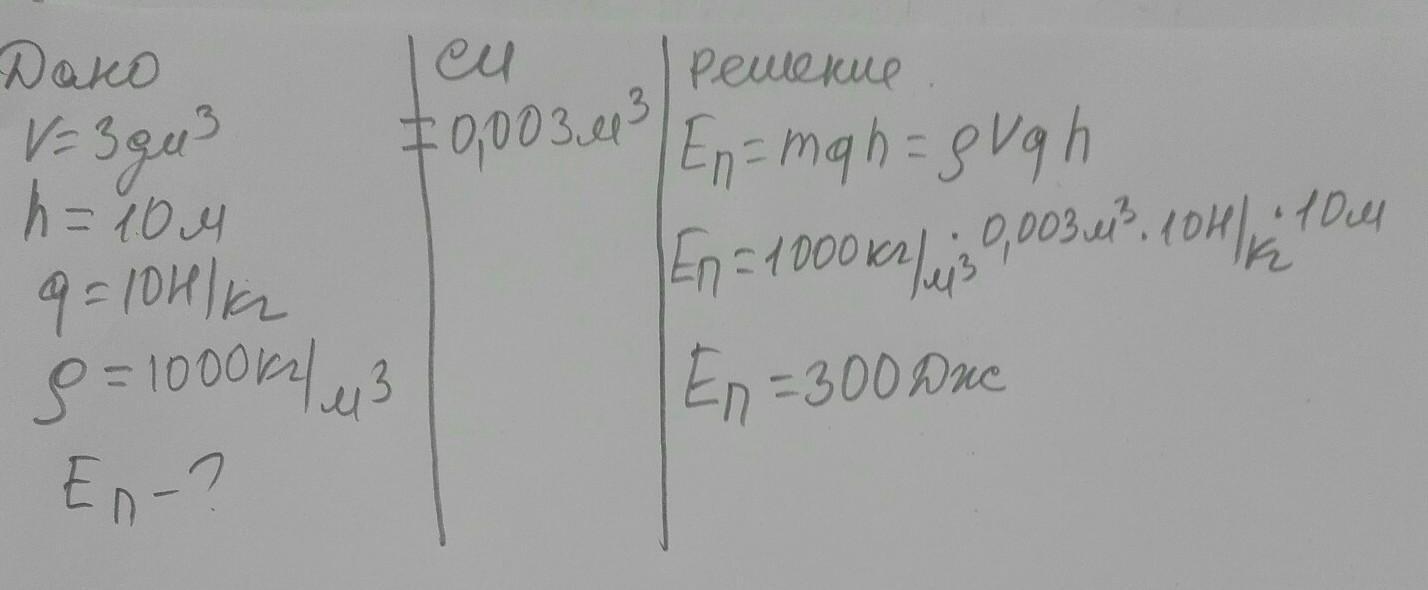 Дано
V=3дм³
h=10м
g=10Н/кг
ρ=1000кг/м³
Eп-?
СИ
=0,003м³
решение
Eп=mgh=ρVgh
Eп=1000кг/м³·0,003м³·10Н/кг·10м
Eп=300Дж